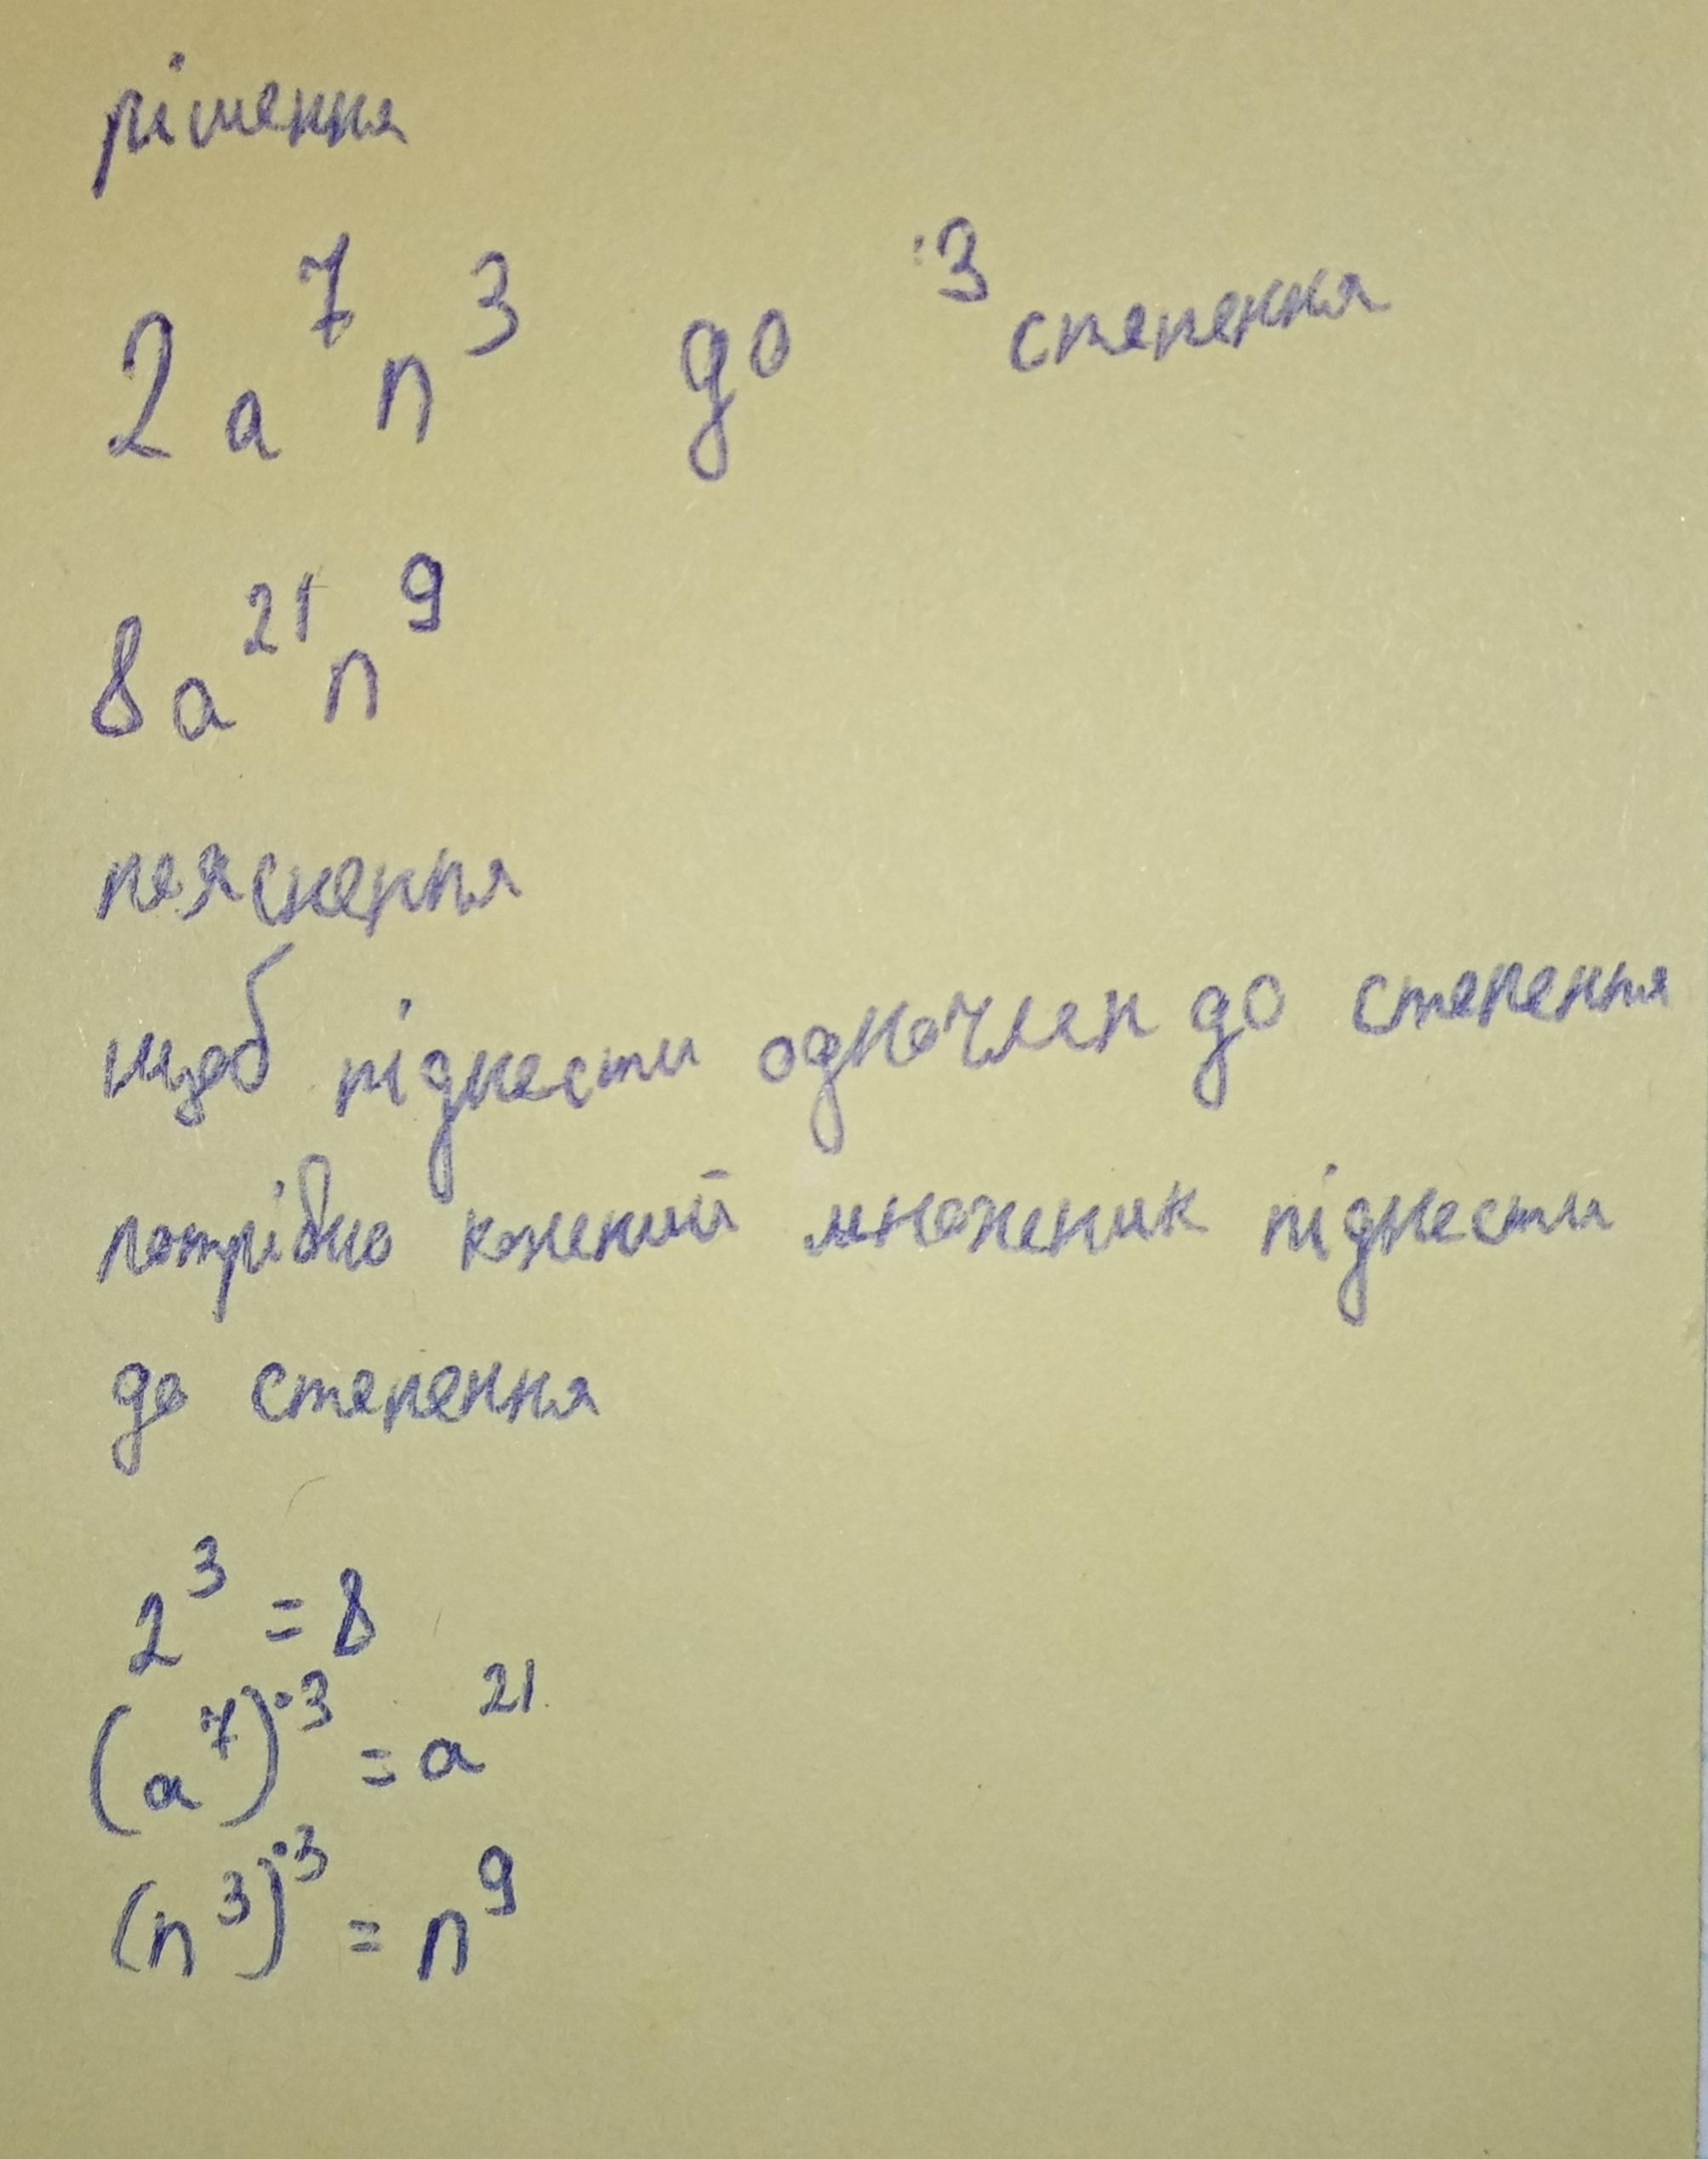 рішення
2a⁷n³ до ·³ степення
8a²¹n⁹
пояснення
щоб піднести одночлен до степення
потрібно кожений множеник піднести
до степення
2³ = 8
(a⁷)·³ = a²¹
(n³)·³ = n⁹